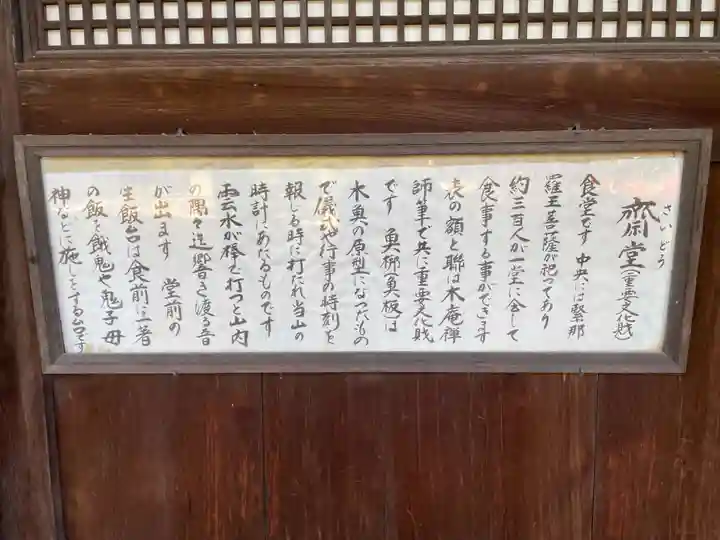 さいどう
齋堂(重要文化財)
食堂です 中央には緊那
羅王菩薩が祀つてあり
約三百人が一堂に会して
食事する事ができます
表の額と聯は木庵禅
師筆で共に重要文化財
です 魚梆(魚板)は
木魚の原型になつたもの
で儀式や行事の時刻を
報じる時に打たれ当山の
時計にあたるものです
雲水が棒で打つと山内
の隅々迄響き渡る音
が出ます 堂前の
生飯台は食前に一著
の飯を餓鬼や鬼子母
神などに施しをする台です